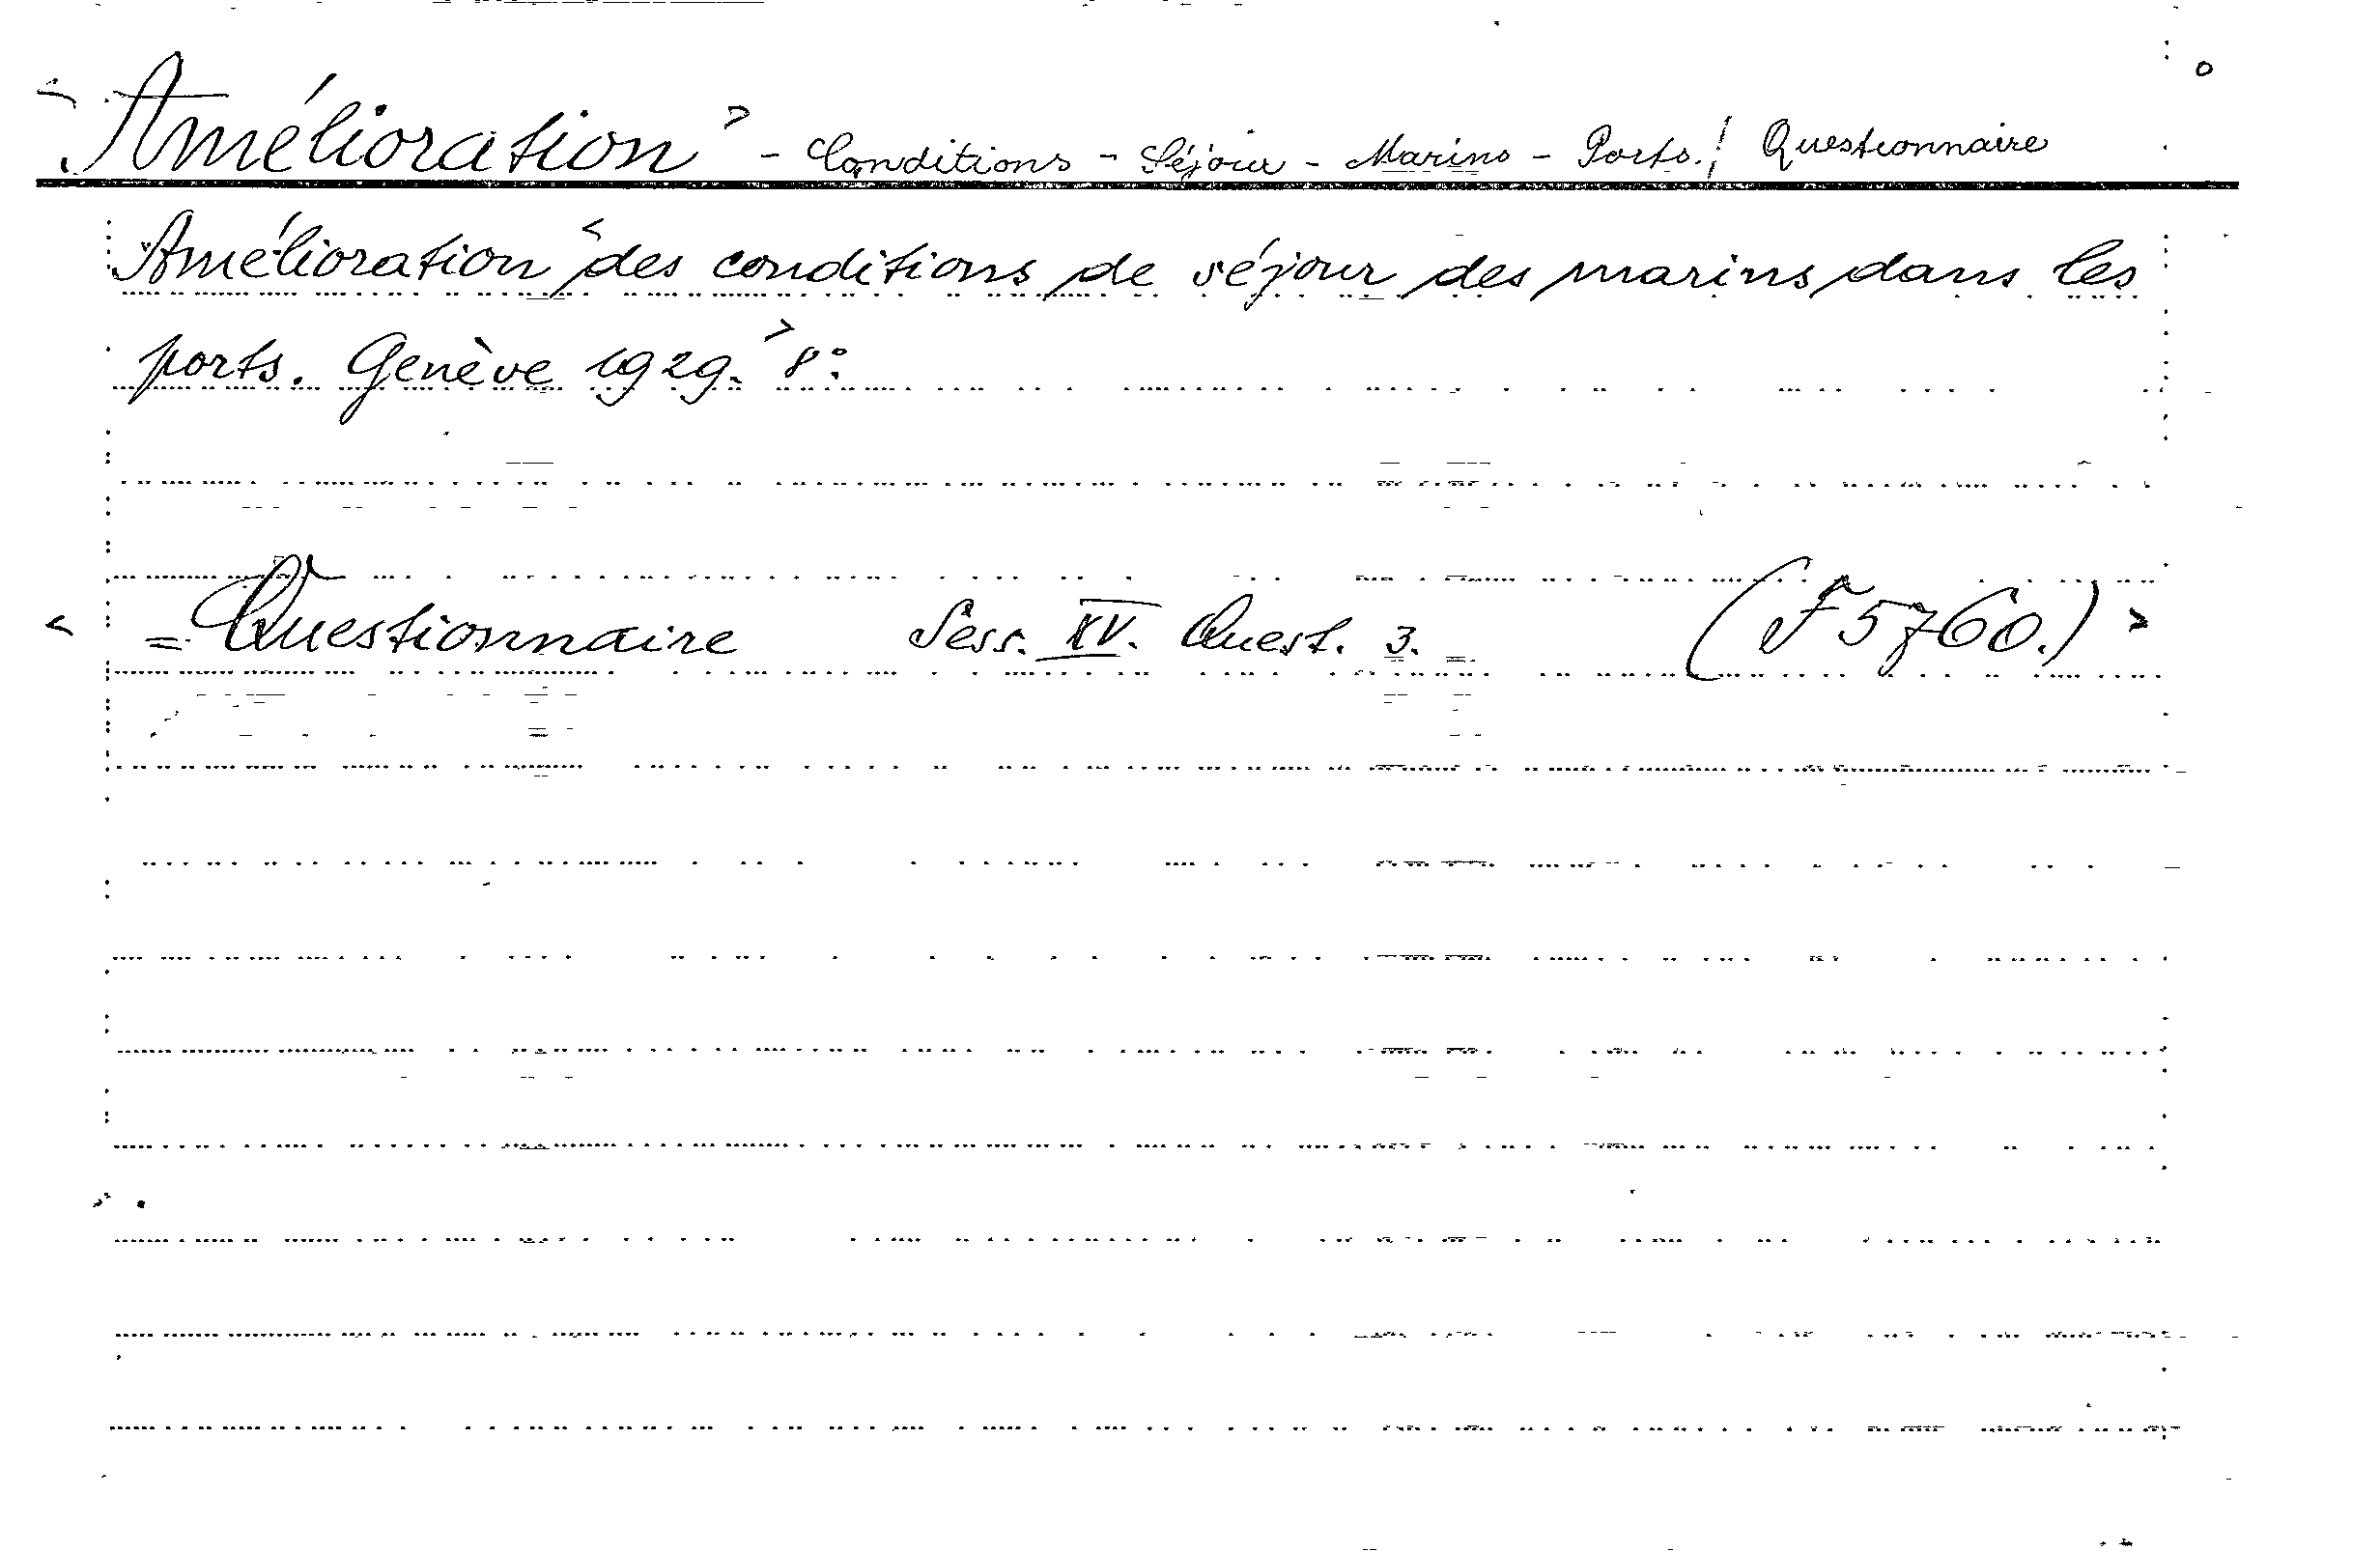 <Amélioration> - Conditions - Séjour - Marins - Ports. / Questionnaire
Amélioration <des conditions de séjour des marins dans les
ports. Genève 1929.> 8°.
< = Questionnaire Sess. XV. Quest. 3. (F 5760.) >